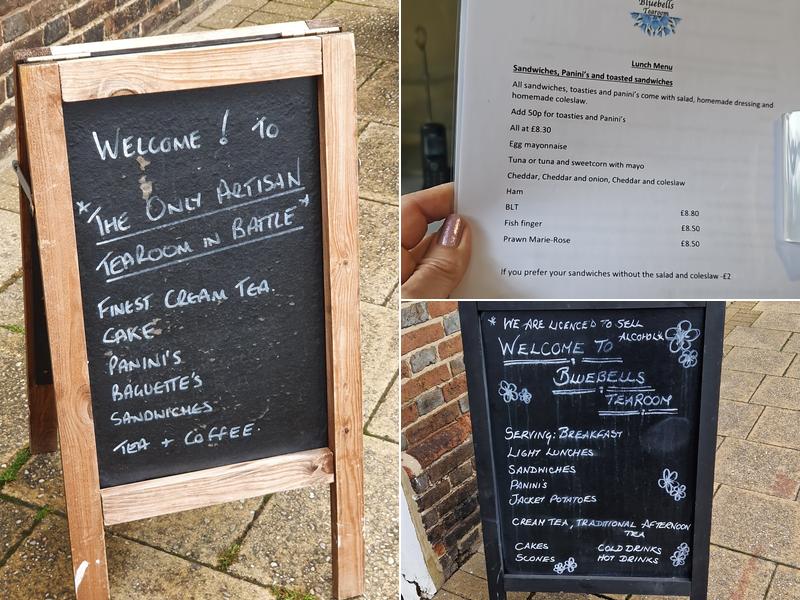 WELCOME! TO
*THE ONLY ARTISAN
TEAROOM IN BATTLE*
FINEST CREAM TEA.
CAKE
PANINI'S
BAGUETTE'S
SANDWICHES
TEA + COFFEE.
Bluebells
Tearoom
Lunch Menu
Sandwiches, Panini's and toasted sandwiches
All sandwiches, toasties and panini's come with salad, homemade dressing and
homemade coleslaw.
Add 50p for toasties and Panini's
All at £8.30
Egg mayonnaise
Tuna or tuna and sweetcorn with mayo
Cheddar, Cheddar and onion, Cheddar and coleslaw
Ham
BLT £8.80
Fish finger £8.50
Prawn Marie-Rose £8.50
If you prefer your sandwiches without the salad and coleslaw -£2
* WE ARE LICENCED TO SELL
ALCOHOL*
WELCOME TO
BLUEBELLS
TEAROOM
SERVING: BREAKFAST
LIGHT LUNCHES
SANDWICHES
PANINI'S
JACKET POTATOES
CREAM TEA, TRADITIONAL AFTERNOON
TEA
CAKES COLD DRINKS
SCONES HOT DRINKS